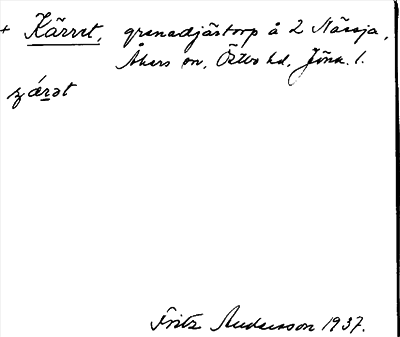 + Kärret, grenadjärstorp å 2 Nässja,
Åkers sn, Östbo hd, Jönk. l.
Fritz Andersson 1937.